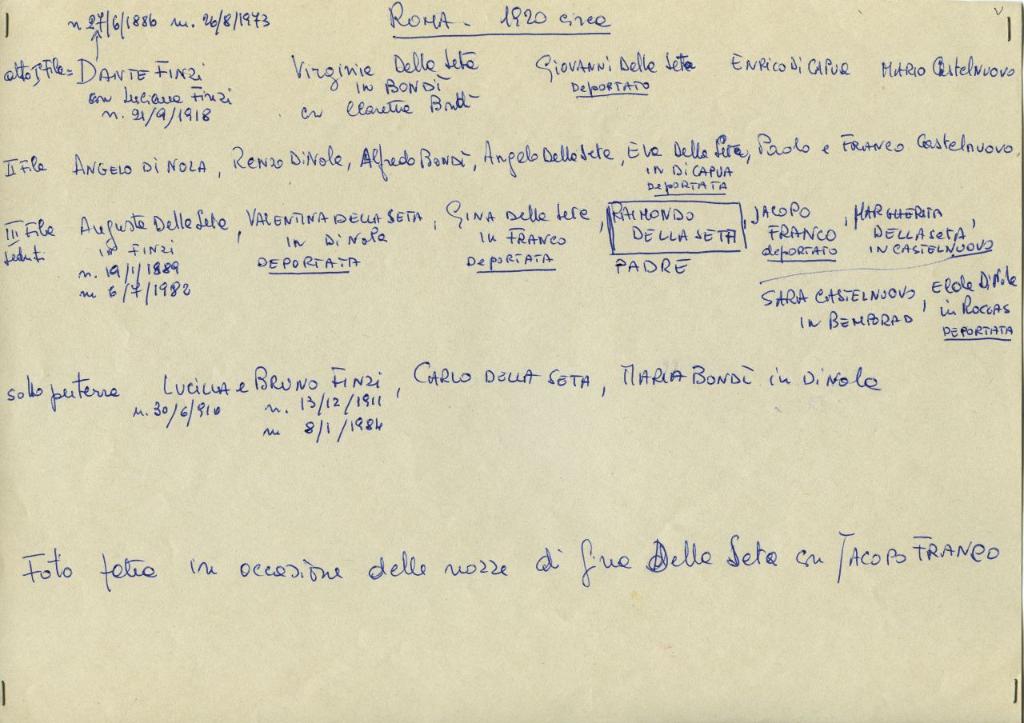 n 27/6/1886 m. 26/8/1973
ROMA - 1920 circa
DANTE FINZI Virginia Della Seta GIOVANNI Della Seta ENRICO DI CAPUA MARIO Castelnuovo
con Luciana Finzi IN BONDÌ DEPORTATO
n. 21/9/1918 con Claretta Bondì
II Fila ANGELO DI NOLA, Renzo Di Nola, Alfredo BONDÌ, Angelo Della Seta, Eva Della Seta, Paolo e FRANCO Castelnuovo,
IN DI CAPUA
DEPORTATA
III Fila Augusta Della Seta, VALENTINA DELLA SETA, GINA Della Seta, RAIMONDO DELLA SETA, JACOPO FRANCO, MARGHERITA DELLA SETA,
seduti in FINZI IN Di Nola in FRANCO PADRE deportato IN CASTELNUOVO
n. 19/1/1889 DEPORTATA DEPORTATA
m 6/7/1982
SARA CASTELNUOVO, Elda Di Nola
IN BEMPORAD in ROCCAS
DEPORTATA
sotto per terra LUCILLA e BRUNO FINZI, CARLO DELLA SETA, MARIA BONDÌ in Di Nola
n. 30/6/910 n. 13/12/1911
m 8/1/1984
Foto fatta in occasione delle nozze di Gina Della Seta con JACOPO FRANCO